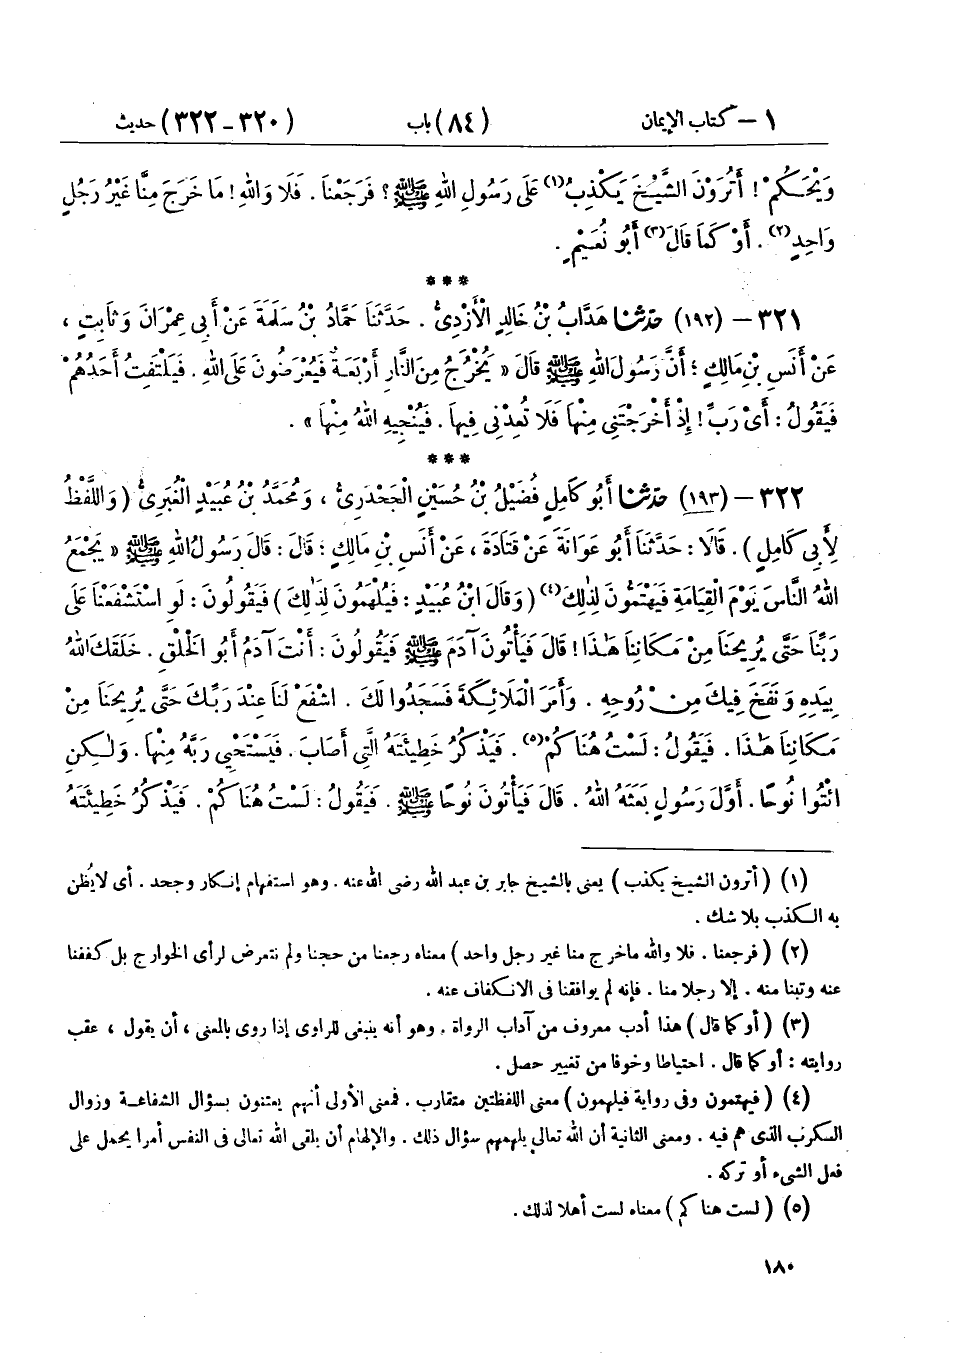 ١ – كتاب الإيمان (٨٤) باب (٣٢٠ – ٣٢٢) حديث
وَيْحَكُمْ ! أَتُرَوْنَ الشَّيْخَ يَكْذِبُ(١) عَلَى رَسُولِ اللهِ ﷺ ؟ فَرَجَعْنَا . فَلَا وَاللهِ ! مَا خَرَجَ مِنَّا غَيْرُ رَجُلٍ
وَاحِدٍ(٢) . أَوْ كَمَا قَالَ(٣) أَبُو نُعَيْمٍ .
***
٣٢١ – (١٩٢) حدثنا هَدَّابُ بْنُ خَالِدٍ الْأَزْدِىُّ . حَدَّثَنَا حَمَّادُ بْنُ سَلَمَةَ عَنْ أَبِي عِمْرَانَ وَثَابِتٍ ،
عَنْ أَنَسِ بْنِ مَالِكٍ ؛ أَنَّ رَسُولَ اللهِ ﷺ قَالَ « يَخْرُجُ مِنَ النَّارِ أَرْبَعَةٌ فَيُعْرَضُونَ عَلَى اللهِ . فَيَلْتَفِتُ أَحَدُهُمْ
فَيَقُولُ : أَىْ رَبِّ ! إِذْ أَخْرَجْتَنِي مِنْهَا فَلَا تُعِدْنِي فِيهَا . فَيُنْجِيهِ اللهُ مِنْهَا » .
***
٣٢٢ – (١٩٣) حدثنا أَبُو كَامِلٍ فُضَيْلُ بْنُ حُسَيْنٍ الْجَحْدَرِىُّ ، وَمُحَمَّدُ بْنُ عُبَيْدٍ الْغُبَرِىُّ ( وَاللَّفْظُ
لِأَبِي كَامِلٍ ) . قَالَا : حَدَّثَنَا أَبُو عَوَانَةَ عَنْ قَتَادَةَ ، عَنْ أَنَسِ بْنِ مَالِكٍ ؛ قَالَ : قَالَ رَسُولُ اللهِ ﷺ « يَجْمَعُ
اللهُ النَّاسَ يَوْمَ الْقِيَامَةِ فَيَهْتَمُّونَ لِذَلِكَ(٤) ( وَقَالَ ابْنُ عُبَيْدٍ : فَيُلْهَمُونَ لِذَلِكَ ) فَيَقُولُونَ : لَوِ اسْتَشْفَعْنَا عَلَى
رَبِّنَا حَتَّى يُرِيحَنَا مِنْ مَكَانِنَا هَذَا ! قَالَ فَيَأْتُونَ آدَمَ ﷺ فَيَقُولُونَ : أَنْتَ آدَمُ أَبُو الْخَلْقِ . خَلَقَكَ اللهُ
بِيَدِهِ وَنَفَخَ فِيكَ مِنْ رُوحِهِ . وَأَمَرَ الْمَلَائِكَةَ فَسَجَدُوا لَكَ . اشْفَعْ لَنَا عِنْدَ رَبِّكَ حَتَّى يُرِيحَنَا مِنْ
مَكَانِنَا هَذَا . فَيَقُولُ : لَسْتُ هُنَاكُمْ(٥) . فَيَذْكُرُ خَطِيئَتَهُ الَّتِي أَصَابَ . فَيَسْتَحْيِي رَبَّهُ مِنْهَا . وَلَكِنِ
ائْتُوا نُوحًا . أَوَّلَ رَسُولٍ بَعَثَهُ اللهُ . قَالَ فَيَأْتُونَ نُوحًا ﷺ . فَيَقُولُ : لَسْتُ هُنَاكُمْ . فَيَذْكُرُ خَطِيئَتَهُ
(١) ( أترون الشيخ يكذب ) يعنى بالشيخ جابر بن عبد الله رضى الله عنه . وهو استفهام إنكار وجحد . أى لا يُظن
به الكذب بلا شك .
(٢) ( فرجعنا . فلا والله ما خرج منا غير رجل واحد ) معناه رجعنا من حجنا ولم نتعرض لرأى الخوارج بل كففنا
عنه وتبنا منه . إلا رجلا منا . فإنه لم يوافقنا فى الانكفاف عنه .
(٣) ( أو كما قال ) هذا أدب معروف من آداب الرواة . وهو أنه ينبغى للراوى إذا روى بالمعنى ، أن يقول ، عقب
روايته : أو كما قال . احتياطا وخوفا من تغيير حصل .
(٤) ( فيهتمون وفى رواية فيلهمون ) معنى اللفظتين متقارب . فمعنى الأولى أنهم يعتنون بسؤال الشفاعة وزوال
الكرب الذى هم فيه . ومعنى الثانية أن الله تعالى يلهمهم سؤال ذلك . والإلهام أن يلقى الله تعالى فى النفس أمرا يحمل على
فعل الشىء أو تركه .
(٥) ( لست هناكم ) معناه لست أهلا لذلك .
١٨٠